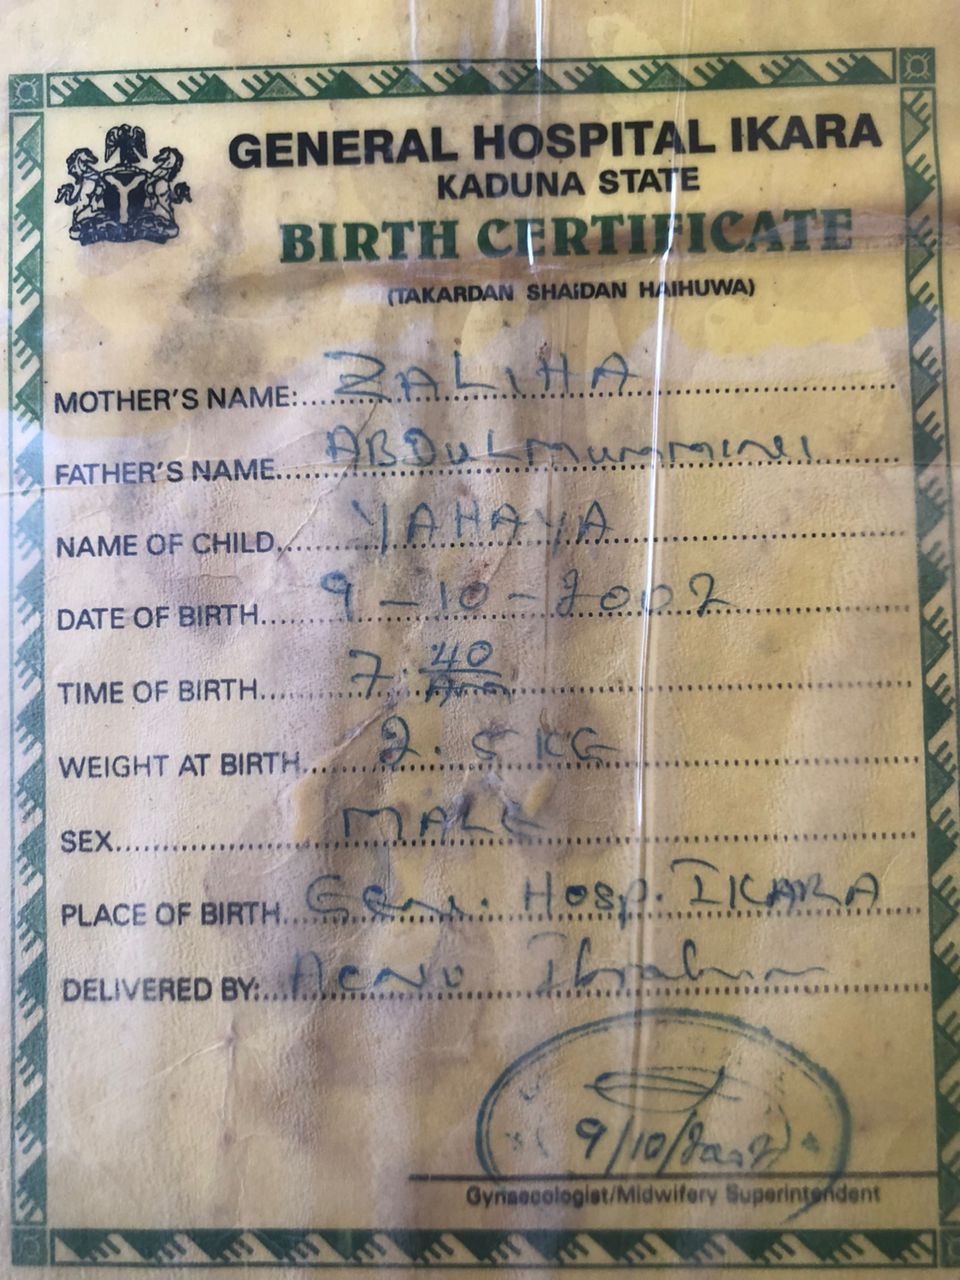 GENERAL HOSPITAL IKARA
KADUNA STATE
BIRTH CERTIFICATE
(TAKARDAN SHAIDAN HAIHUWA)
MOTHER'S NAME: ZALIHA
FATHER'S NAME ABDULMUMMINI
NAME OF CHILD YAHAYA
DATE OF BIRTH 9-10-2002
TIME OF BIRTH 7.40 Am
WEIGHT AT BIRTH 2.5KG
SEX MALE
PLACE OF BIRTH Gen. Hosp. IKARA
DELIVERED BY: Ibrahim
9/10/2002
Gynaecologist/Midwifery Superintendent